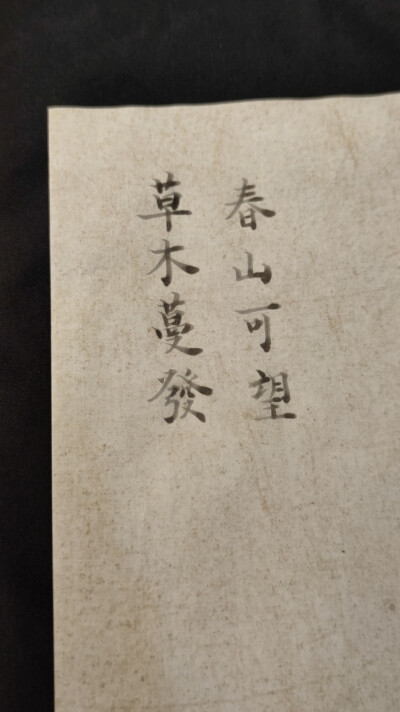 春山可望
草木蔓發